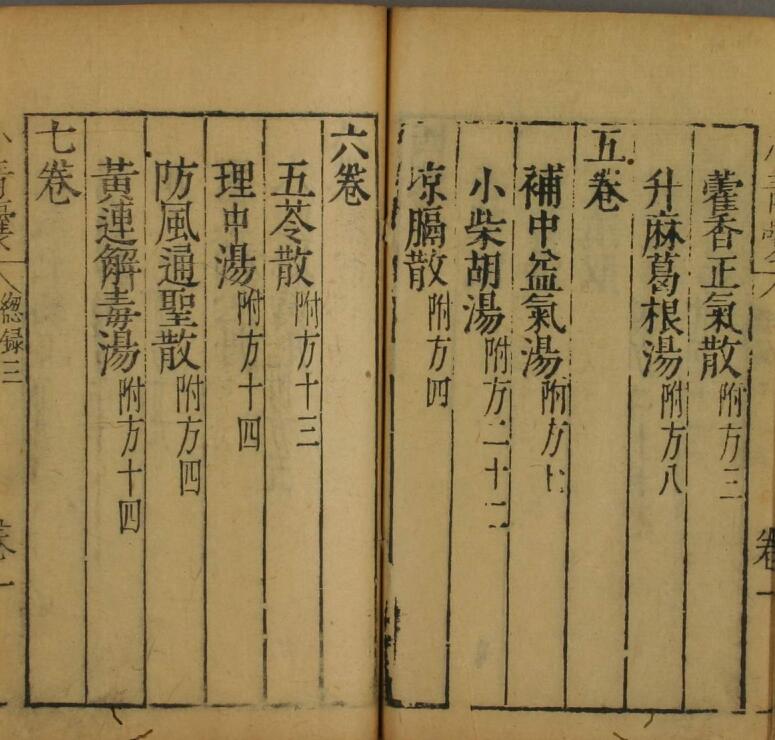 藿香正氣散附方三
升麻葛根湯附方八
五卷
補中益氣湯附方七
小柴胡湯附方二十二
凉膈散附方四
六卷
五苓散附方十三
理中湯附方十四
防風通聖散附方四
黃連解毒湯附方十四
七卷
總録三